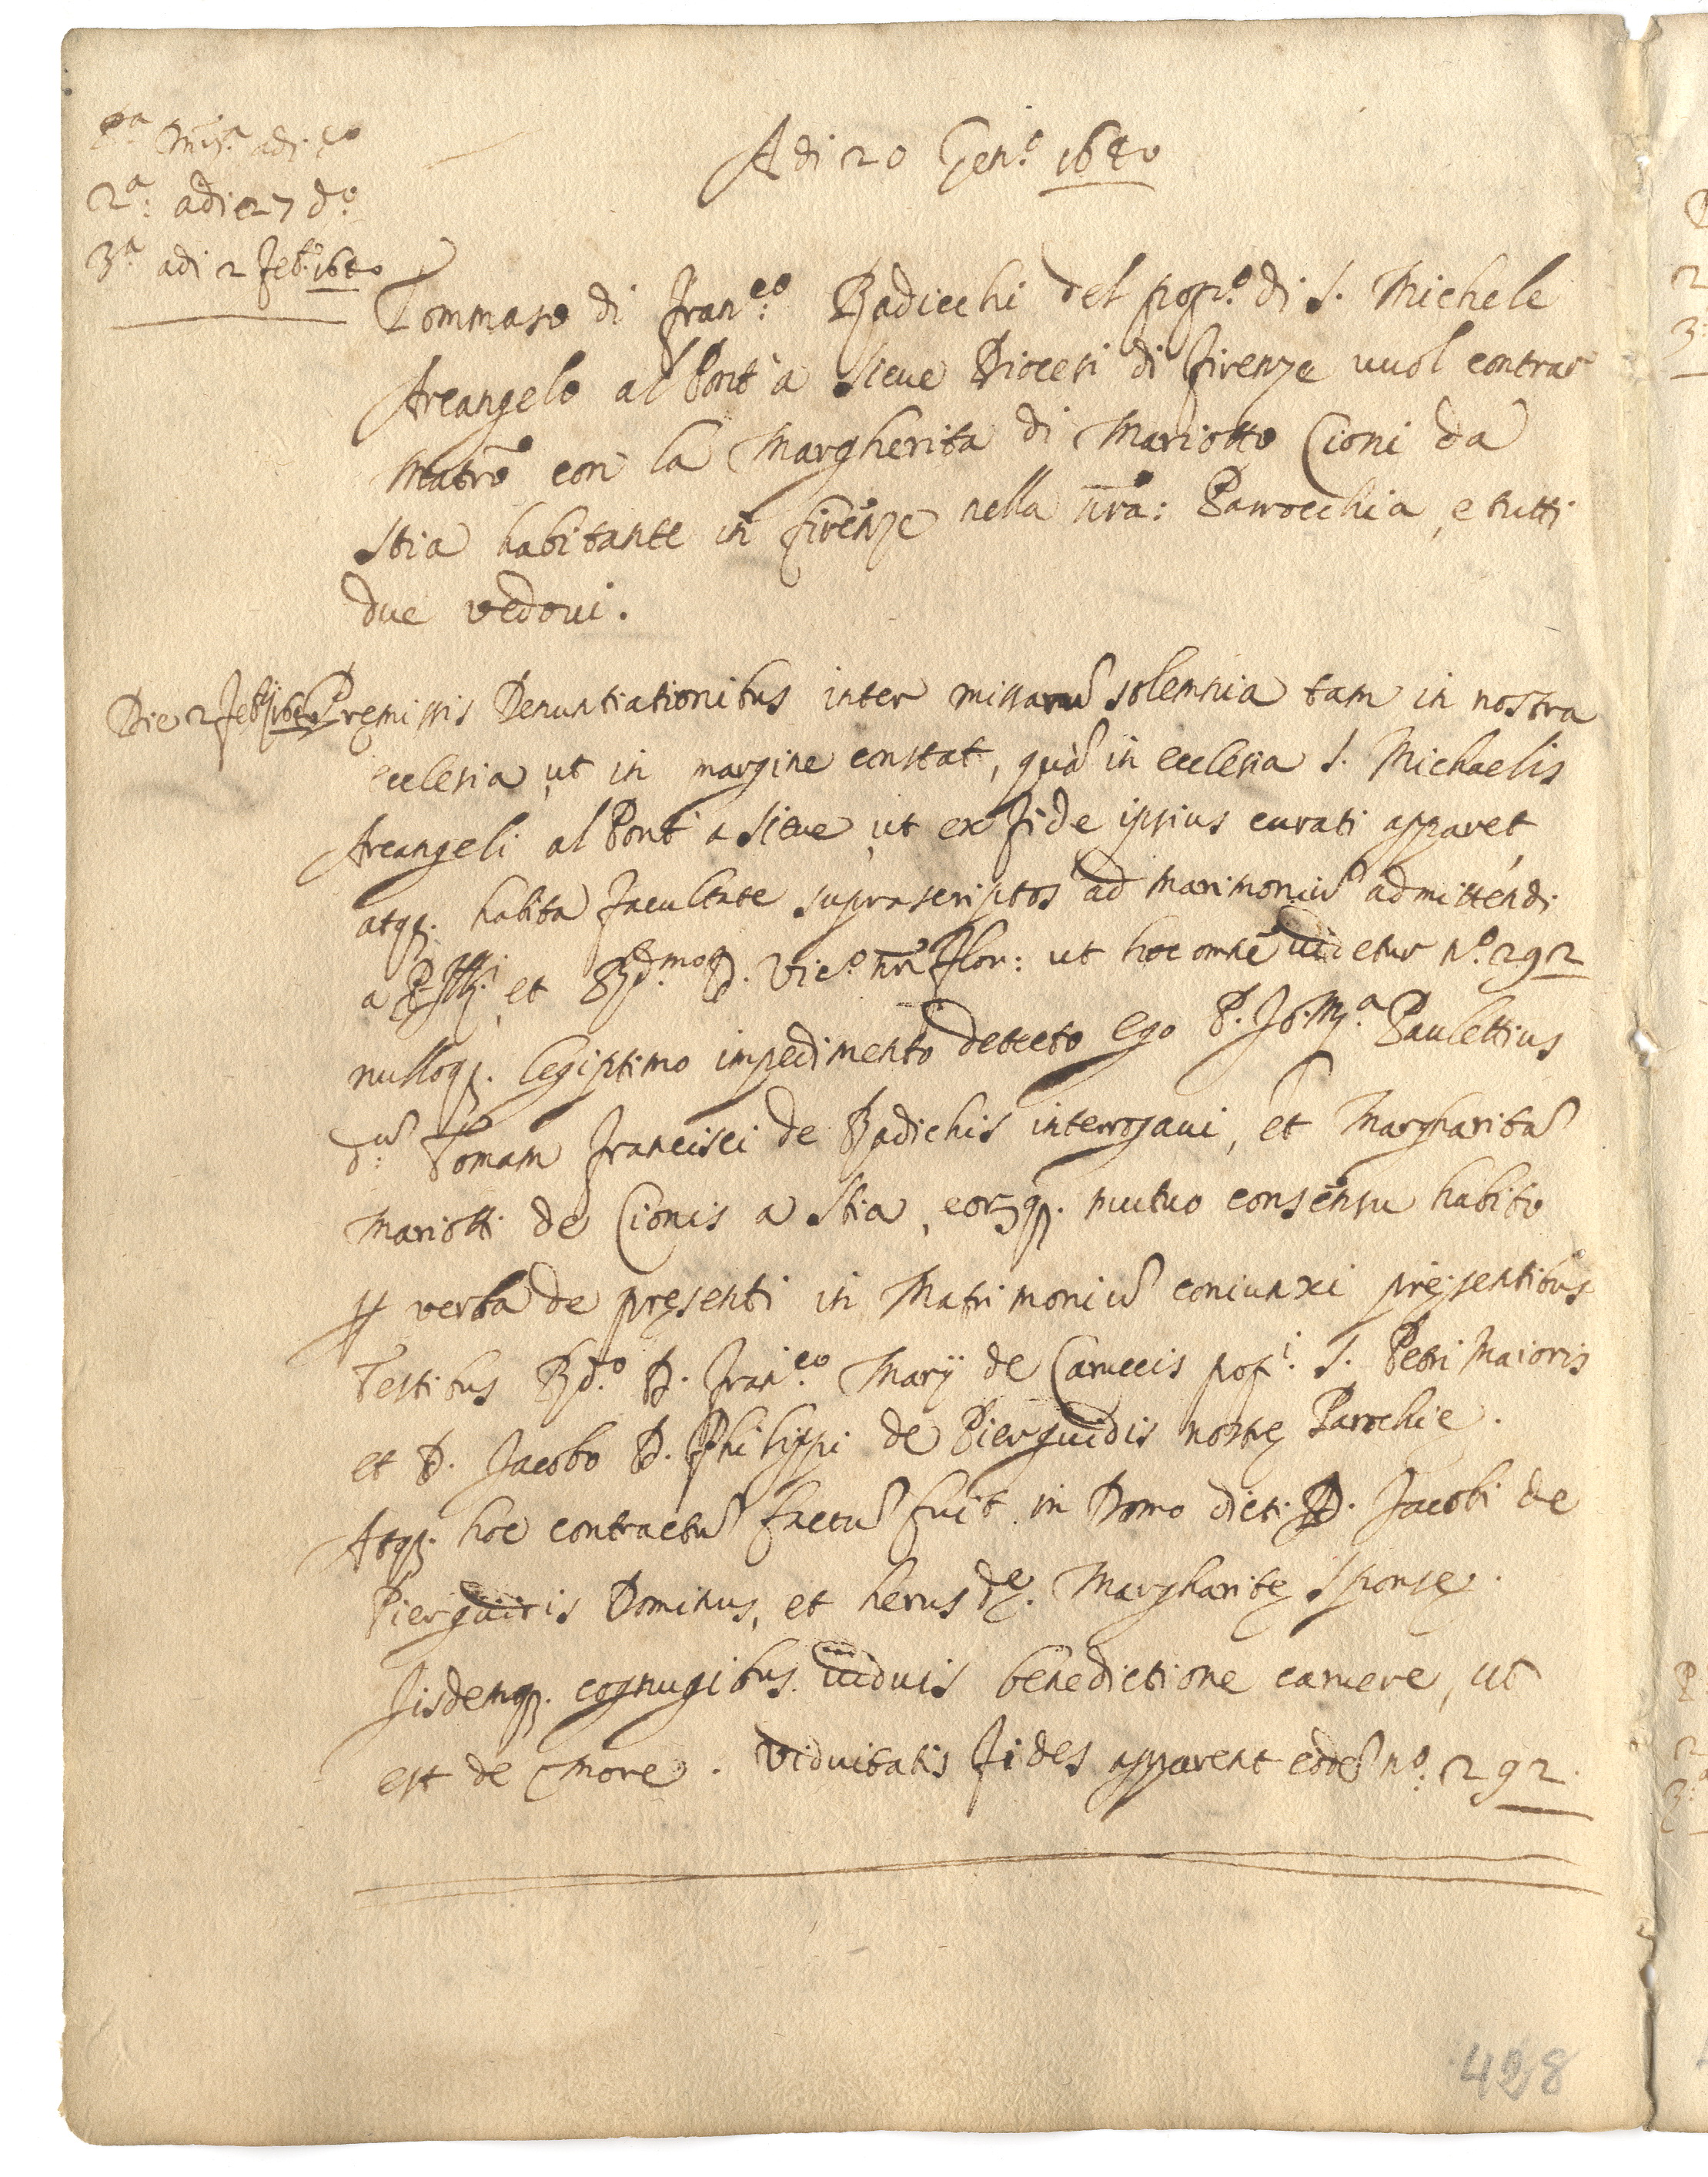 Adi 20 Gen.o 1640
2.a adi 27 d.o
3.a adi 2 Feb.o 1640
Tommaso di Fran.co Badicchi del pop.o di S. Michele
Arcangelo al Pont'a Sieve Diocesi di Firenze vuol contrar
Matrō con la Margherita di Mariotto Cioni da
Stia habitante in firenze nella nrā: Parrocchia, e tutti
due vedovi.
Die 2 Feb. 1640 Premissis Denuntiationibus inter missarū solemnia tam in nostra
ecclesia, ut in margine constat, quā in ecclesia S. Michaelis
Arcangeli al Pont'a Sieve, ut ex fide ipsius curati apparet,
atq. habita facultate suprascriptos ad marimoniū admittendi
a et R.mo D. Vic.o nrī Flor: ut hoc omnē videtur n.o 292
nulloq. legiptimo impedimento detecto ego P. M.a Paulettius
d.ū Tomam Francisci de Badichis interrogavi, et Margharitā
Mariotti de Cionis a Stia, eorūq. mutuo consensu habito
p verba de presenti in Matrimoniū coniunxi presentibus
Testibus R.do D. Fran.co Marij de Caruccis pop.i S. Petri Maioris
et D. Jacobo D. Philippi de Pierguidis nostrę Parochie.
Atq. hoc contractū factū fuit in Domo dicti D. Jacobi de
Pierguiris Dominus, et herus d.ę Margharitę Sponsę.
Jisdemq. cognugibus viduis benedictione carvere, ut
est de more. Viduitatis fides apparent eodē n.o 292.
428